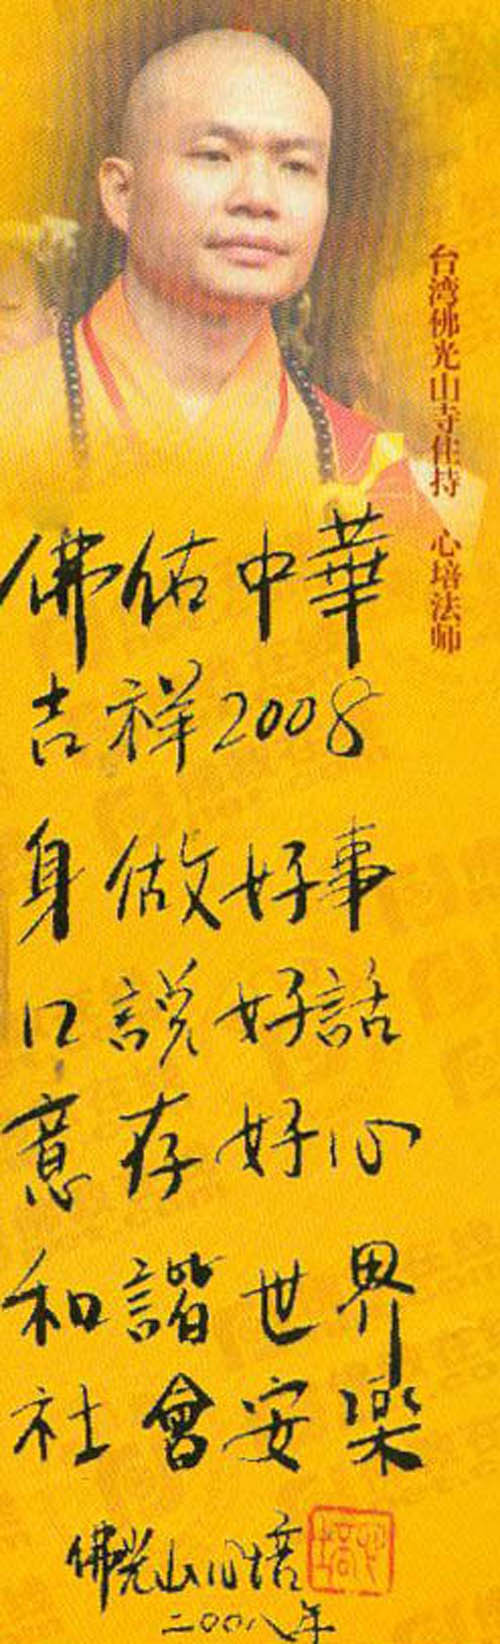 台湾佛光山寺住持 心培法师
佛佑中華
吉祥2008
身做好事
口説好話
意存好心
和諧世界
社會安樂
佛光山心培
心培
二00八年